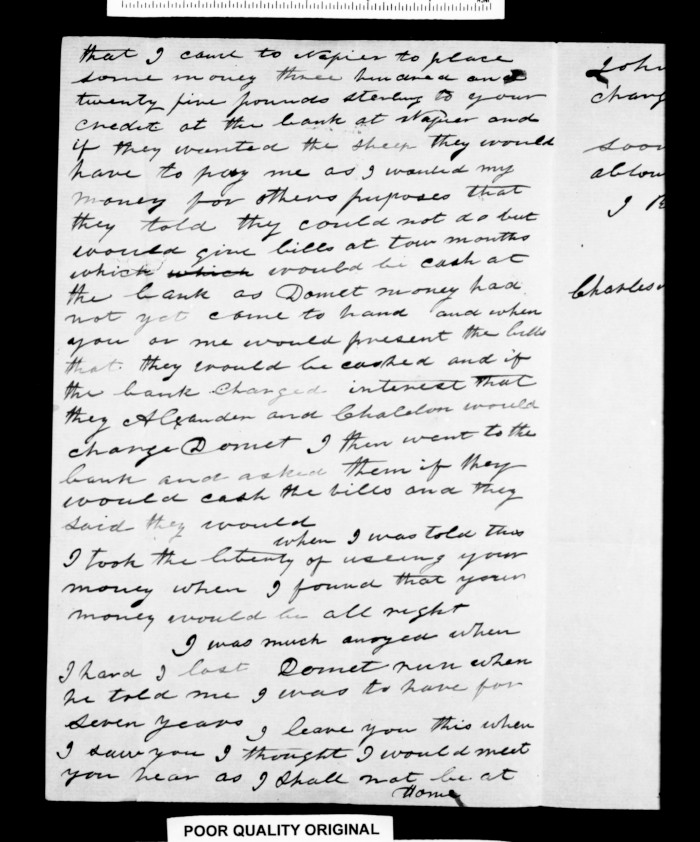 that I came to Napier to place
some money three hundred and
twenty five pounds sterling to your
credit at the bank at Napier and
if they wanted the sheep they would
have to pay me as I wanted my
money for others puposes that
they told they could not do but
would give bills at tow months
which which would be cash at
the bank as Domet money had
not yet come to hand and when
you or me would present the bills
that they would be cashed and if
the bank Charged interest that
they Alexander and Chaldon would
change Domet I then went to the
bank and asked them if they
would cash the bills and they
said they would
when I was told this
I took the liberty of useing your
money when I found that your
money would be all right
I was much anoyed when
I hard I lost Domet run when
he told me I was to have for
seven years I leave you this when
I saw you I thought I would meet
you hear as I Shall not be at
Home
John
charg
soon
allow
I
Charles
POOR QUALITY ORIGINAL